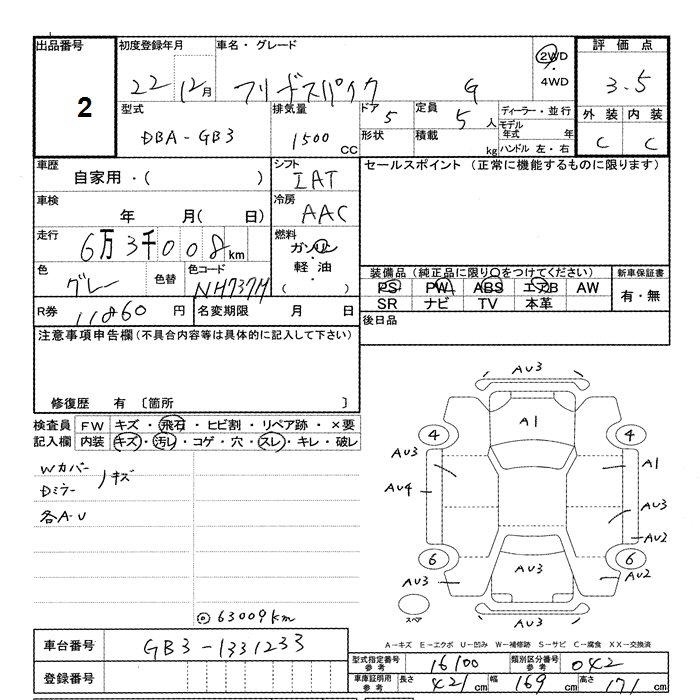 出品番号 初度登録年月 車名・グレード 評価点
2 22 12月 フリードスパイク G 2WD 4WD 3.5
型式 排気量 ドア 定員 ディーラー・並行 外装 内装
DBA-GB3 1500 CC 5 5人 モデル年式 年 C C
形状 積載 kg ハンドル 左・右
車歴 シフト セールスポイント (正常に機能するものに限ります)
自家用・( ) IAT
車検 冷房
年 月( 日) AAC
走行 燃料
6万3千008km ガソリン
軽油
( )
色 色替 色コード
グレー NH737M
装備品 (純正品に限り○をつけてください) 新車保証書
PS PW ABS エアB AW 有・無
SR ナビ TV 本革
R券 11860 円 名変期限 月 日 後日品
注意事項申告欄 (不具合内容等は具体的に記入して下さい)
修復歴 有 〔箇所 〕
検査員 FW キズ・飛石・ヒビ割・リペア跡・×要
記入欄 内装 キズ・汚レ・コゲ・穴・スレ・キレ・破レ
Wカバー
Dミラー キズ
各A-U
63009km
AU3
A1
4 4
AU3 A1
AU4 AU3
AU2
6 6
AU3 AU3 AU2
スペア AU3
A-キズ E-エクボ U-凹み W-補修跡 S-サビ C-腐食 XX-交換済
車台番号 GB3-1331233
登録番号
型式指定番号 参考 16100 類別区分番号 参考 042
車庫証明用 参考 長さ 421cm 幅 169cm 高さ 171cm